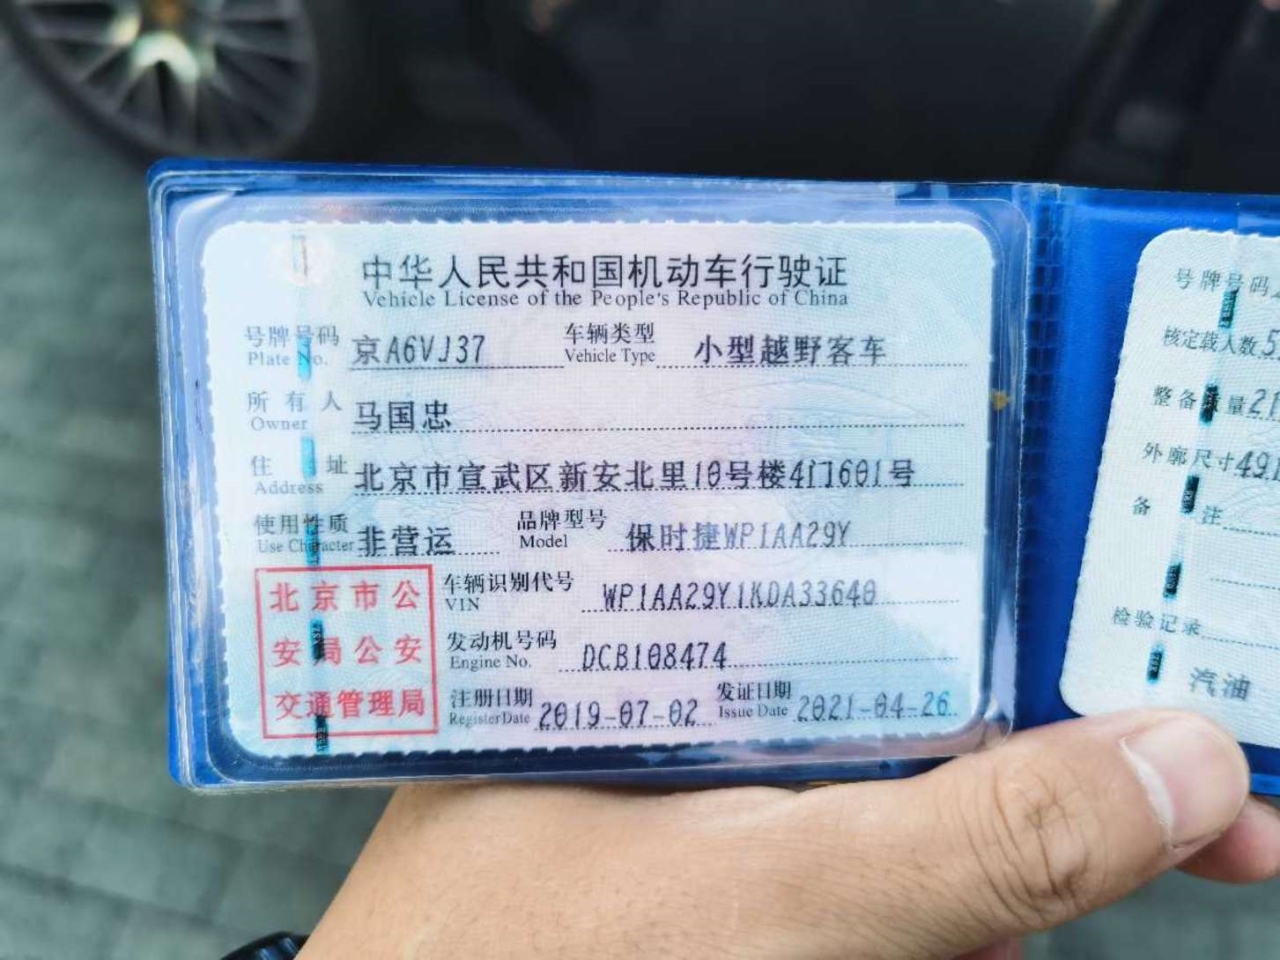 中华人民共和国机动车行驶证
Vehicle License of the People's Republic of China
号牌号码 京A6VJ37 车辆类型 小型越野客车
Plate No. Vehicle Type
所有人 马国忠
Owner
住址 北京市宣武区新安北里10号楼4门601号
Address
使用性质 非营运 品牌型号 保时捷WP1AA29Y
Use Character Model
车辆识别代号 WP1AA29Y1KDA33640
VIN
发动机号码 DCB108474
Engine No.
注册日期 2019-07-02 发证日期 2021-04-26
Register Date Issue Date
北京市公
安局公安
交通管理局
号牌号码
核定载人数 5
整备质量
外廓尺寸 491
备注
检验记录
汽油